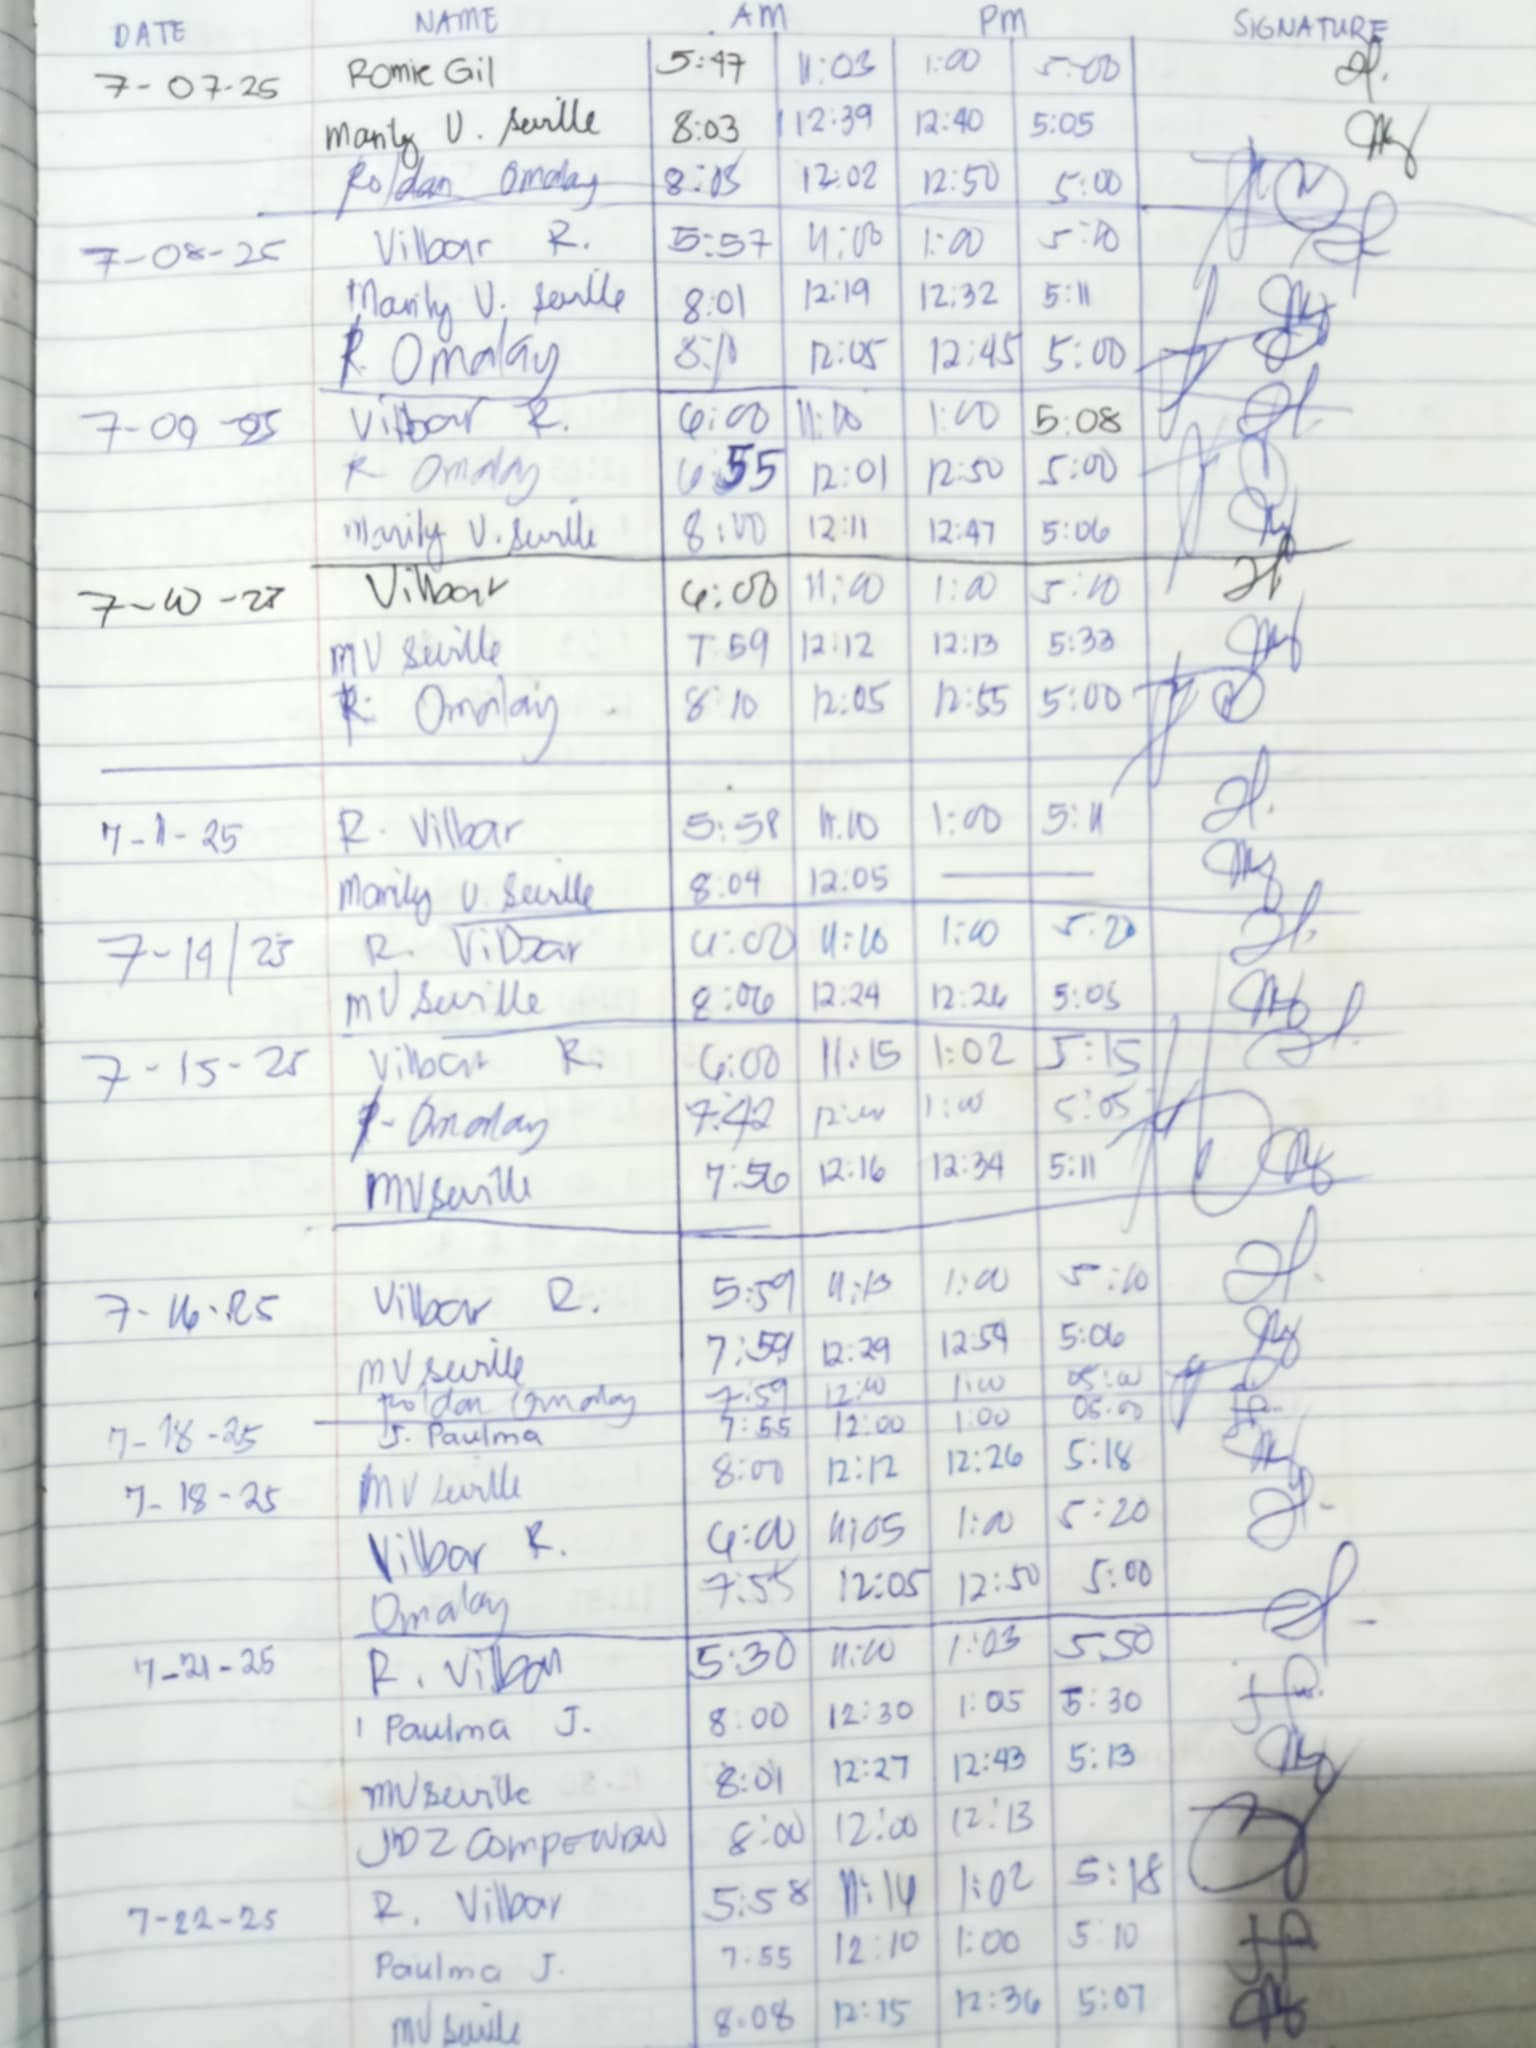 DATE NAME AM PM SIGNATURE
7-07-25 Romie Gil 5:47 11:03 1:00 5:00
Marily V. Seville 8:03 12:39 12:40 5:05
Roldan Omalay 8:05 12:02 12:50 5:00
7-08-25 Vilbar R. 5:57 11:00 1:00 5:10
Marily V. Seville 8:01 12:19 12:32 5:11
R. Omalay 12:05 12:45 5:00
7-09-25 Vilbar R. 6:00 11:10 1:00 5:08
R Omalay 6:55 12:01 12:50 5:00
Marily V. Seville 8:00 12:11 12:47 5:06
7-10-25 Vilbar 6:00 11:00 1:00 5:10
MV Seville 7:59 12:12 12:13 5:33
R. Omalay 8:10 12:05 12:55 5:00
7-11-25 R. Vilbar 5:58 11:10 1:00 5:11
Marily V. Seville 8:04 12:05
7-14/25 R. Vilbar 6:00 11:10 1:00 5:20
MV Seville 8:06 12:24 12:26 5:05
7-15-25 Vilbar R. 6:00 11:15 1:02 5:15
R- Omalay 7:42 12:00 1:00 5:05
MV Seville 7:56 12:16 12:34 5:11
7-16-25 Vilbar R. 5:59 11:13 1:00 5:10
MV Seville 7:59 12:29 12:59 5:06
Roldan Omalay 7:59 12:00 1:00 05:00
7-18-25 J. Paulma 7:55 12:00 1:00 05:00
7-18-25 MV Seville 8:00 12:12 12:26 5:18
Vilbar R. 6:00 11:05 1:00 5:20
Omalay 7:55 12:05 12:50 5:00
7-21-25 R. Vilbar 5:30 11:00 1:03 5:50
Paulma J. 8:00 12:30 1:05 5:30
MV Seville 8:01 12:27 12:43 5:13
8:00 12:00 12:13
7-22-25 R. Vilbar 5:58 11:14 1:02 5:18
Paulma J. 7:55 12:10 1:00 5:10
MV Seville 8:08 12:15 12:36 5:07